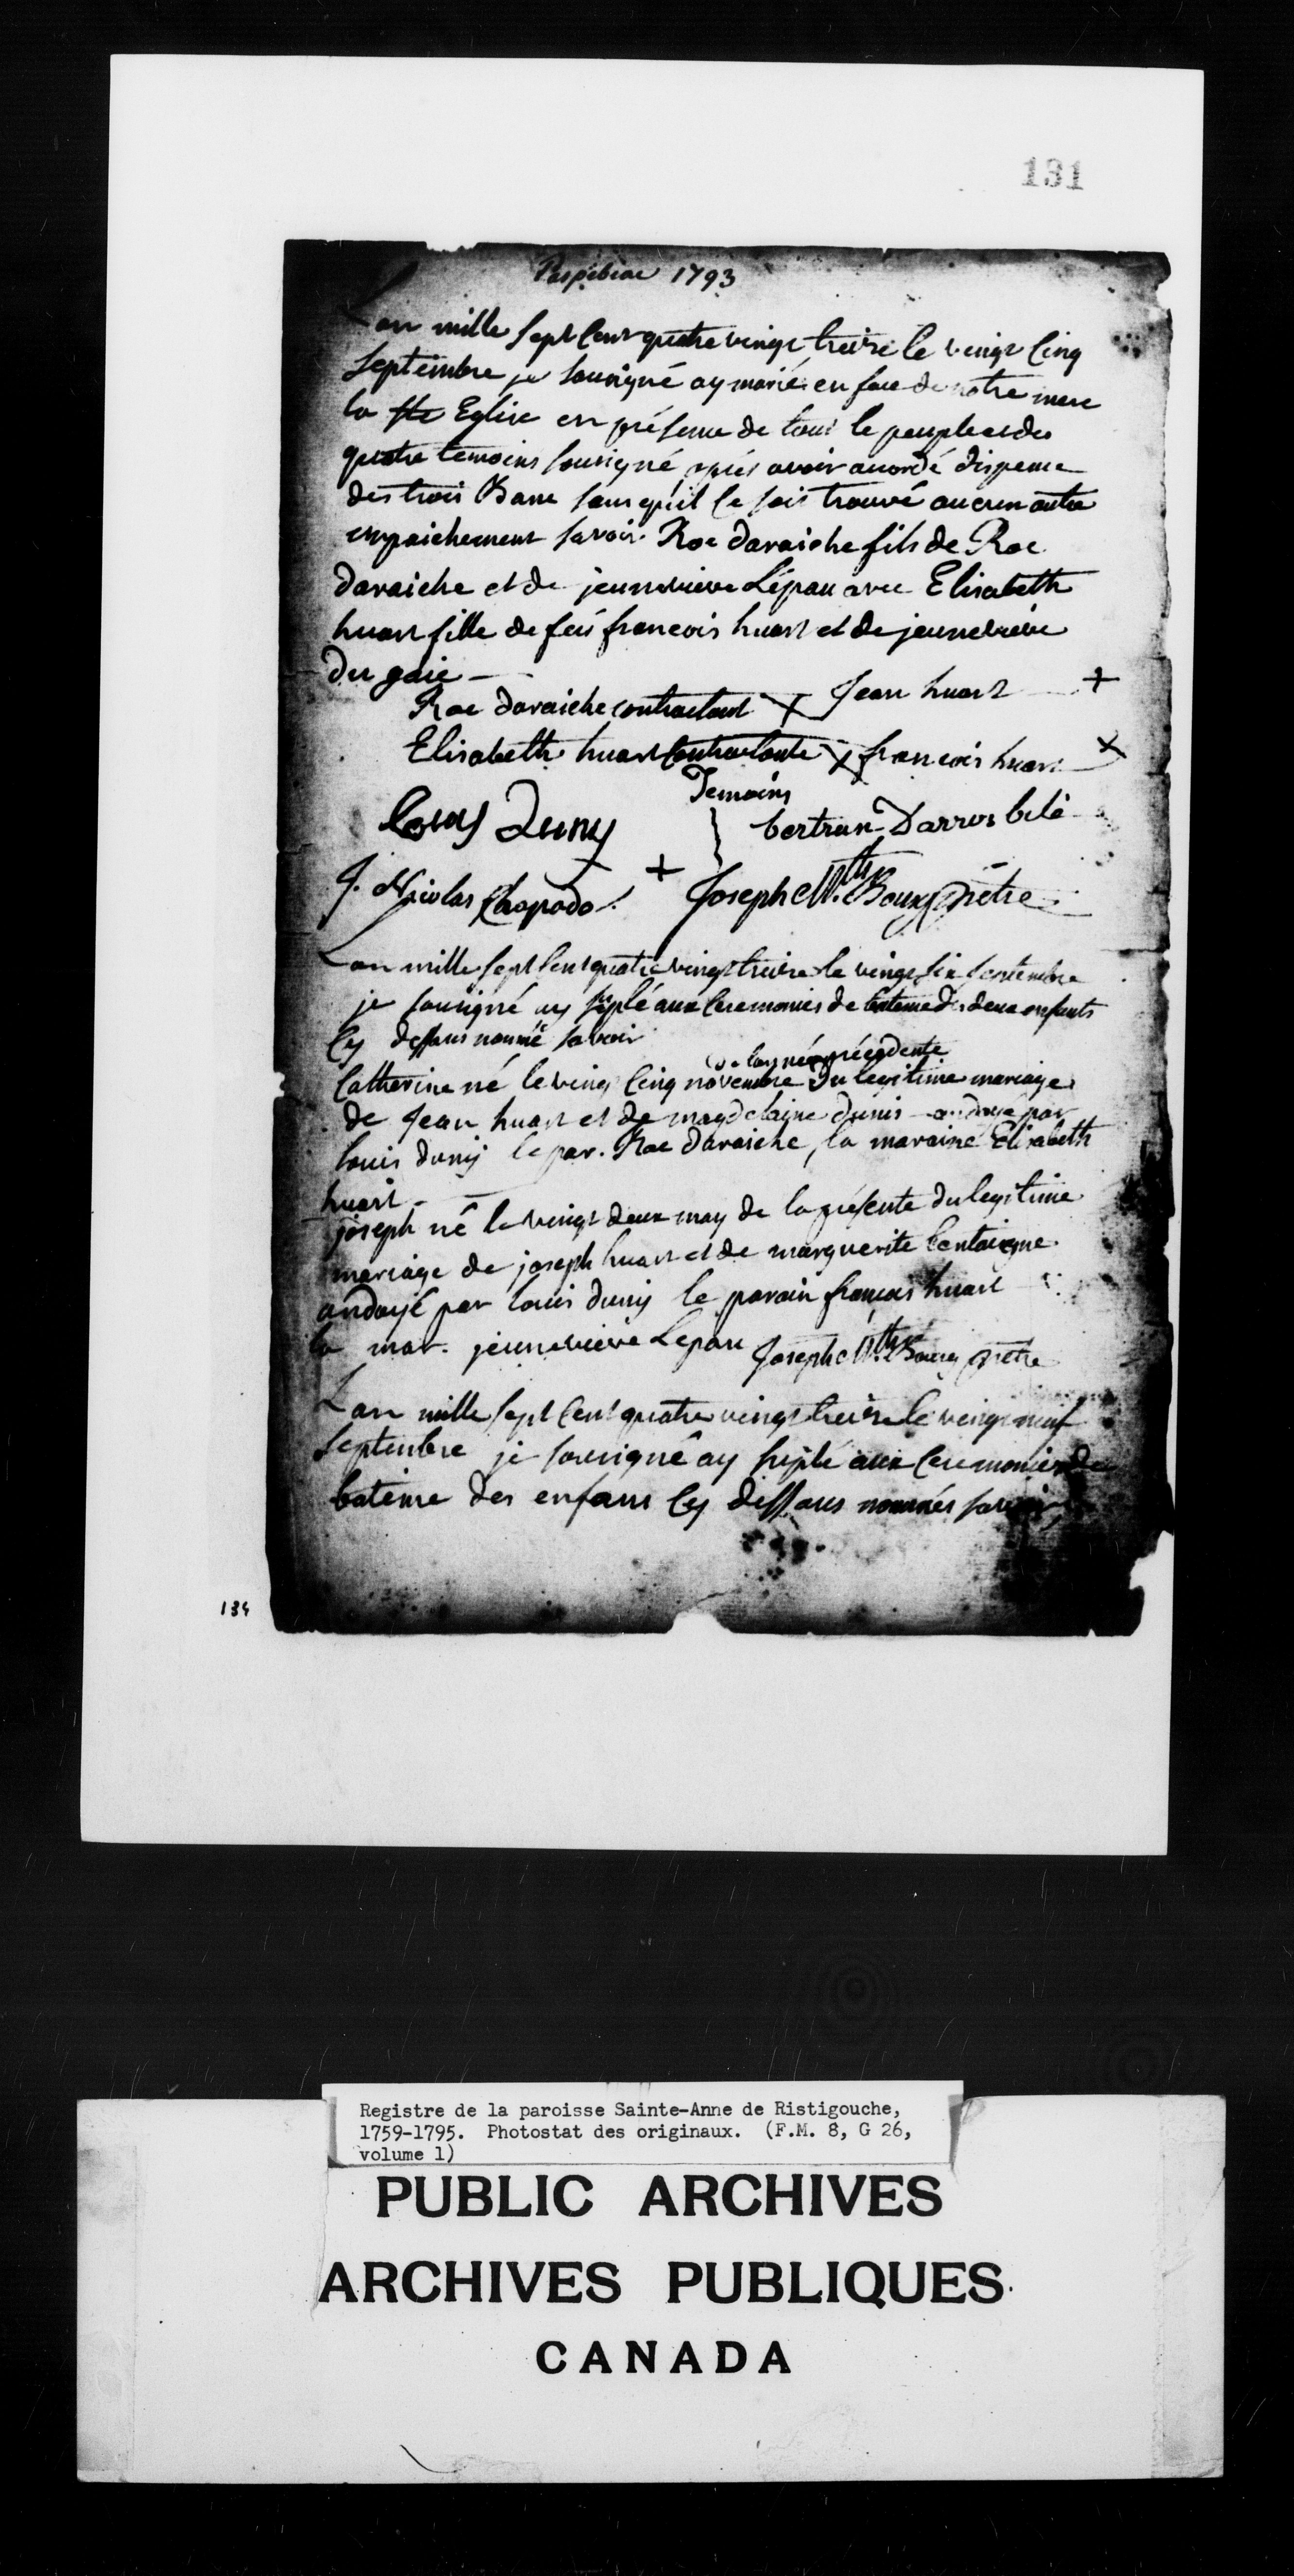 131
Paspébiac 1793
L'an mille sept Cent quatre vingt treize le vingt Cinq
Septembre je sousigné ay marié en face de notre mere
la Ste Eglise en présence de tout le peuple et des
quatre temoins sousigné, aprés avoir accordé dispence
des trois Banc sans quil ce soit trouvé aucun autre
empaichement savoir Roc daraiche fils de Roc
daraiche et de jeunevieve Lépau avec Elisabeth
huart fille de feü francois huart et de jeunevieve
du gaie —
Roc daraiche contractant X Jean huart +
Elisabeth huart Contractante X francois huart X
Temoins
Louis Duny bertran Darrosbilé
J. Nicolas Chapado + Joseph Mth. Bourg Prêtre
L'an mille sept Cent quatre vingt treize le vingt six septembre
je sousigné ay suplé aux Ceremonies de bateme des deux enfants
Cy dessous nommé savoir
de lannée précédente
Catherine né le vingt Cinq novembre du legitime mariage
de Jean huart et de magdelaine dunis andoyé par
louis duny le par. Roc daraiche, la maraine Elisabeth
huart —
joseph né le vingt deux may de la présente du legitime
mariage de joseph huart et de marguerite Centaigne
andoyé par louis duny le parain francois huart
la mar. jeunevieve Lepau Joseph Mth. Bourg Prêtre
L'an mille sept Cent quatre vingt treize le vingt neuf
Septembre je sousigné ay suplé aux Ceremonies de
batême des enfans Cy dessous nommés savoir
134
Registre de la paroisse Sainte-Anne de Ristigouche,
1759-1795. Photostat des originaux. (F.M. 8, G 26,
volume 1)
PUBLIC ARCHIVES
ARCHIVES PUBLIQUES
CANADA